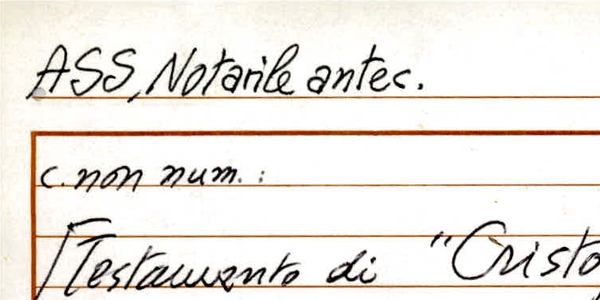 ASS, Notarile antec.
c. non num. :
[Testamento di "Cristo